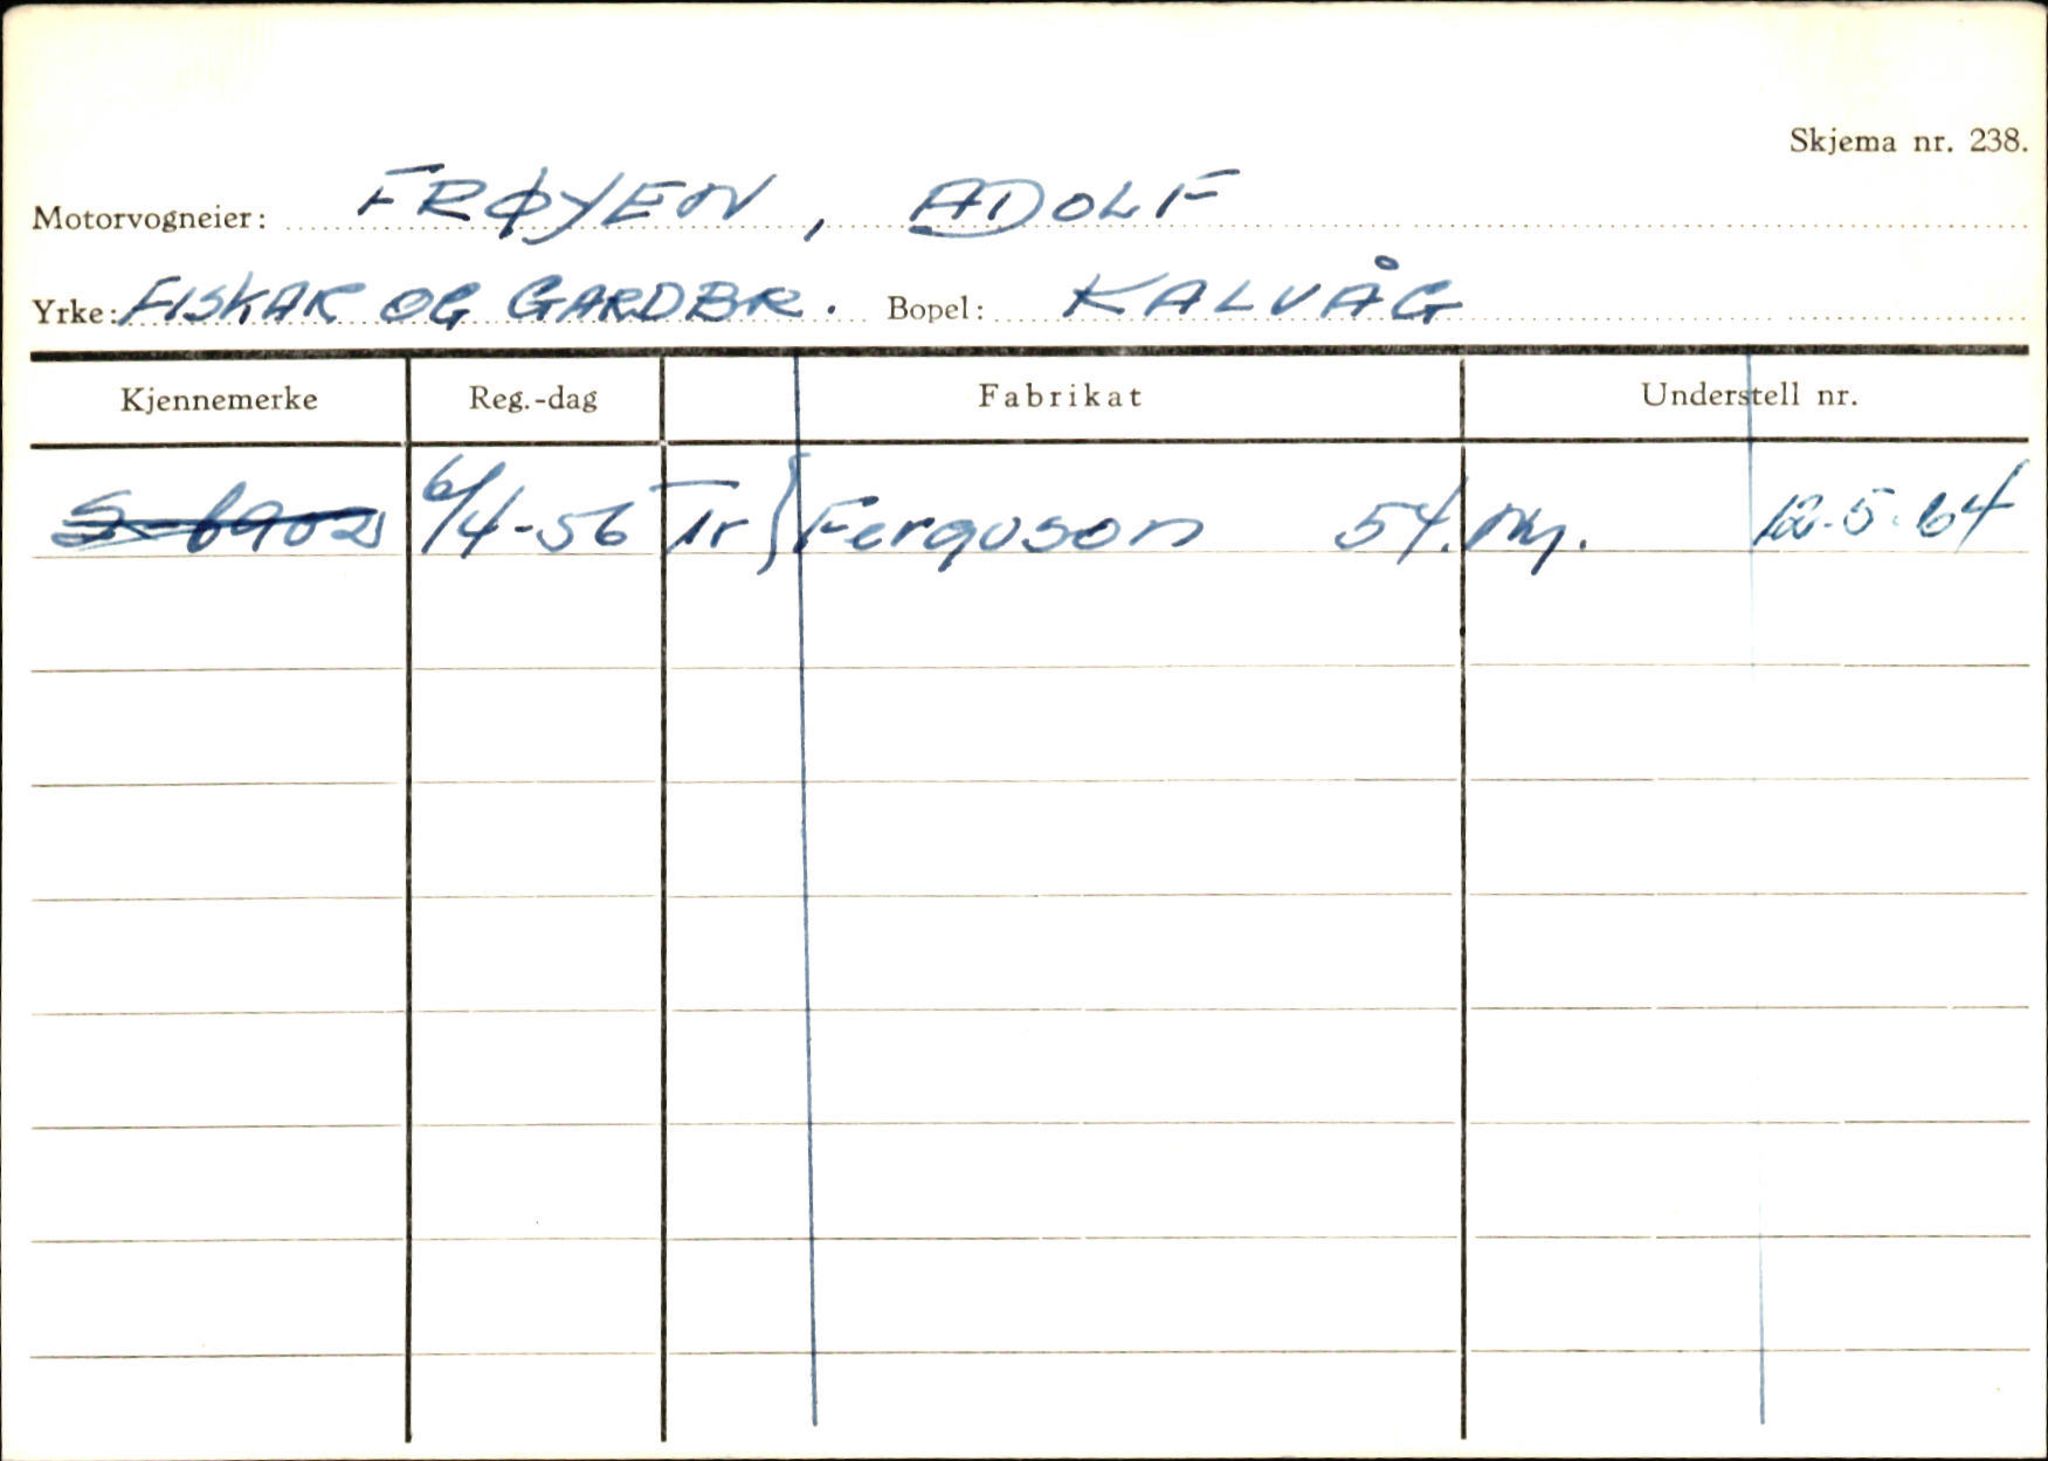 Skjema nr. 238.
Motorvogneier: FRØYEN, ADOLF
Yrke: FISKAR OG GARDBR. Bopel: KALVÅG
Kjennemerke Reg.-dag Fabrikat Understell nr.
S-6902 6/4-56 Tr Ferguson 54. 12-5-64